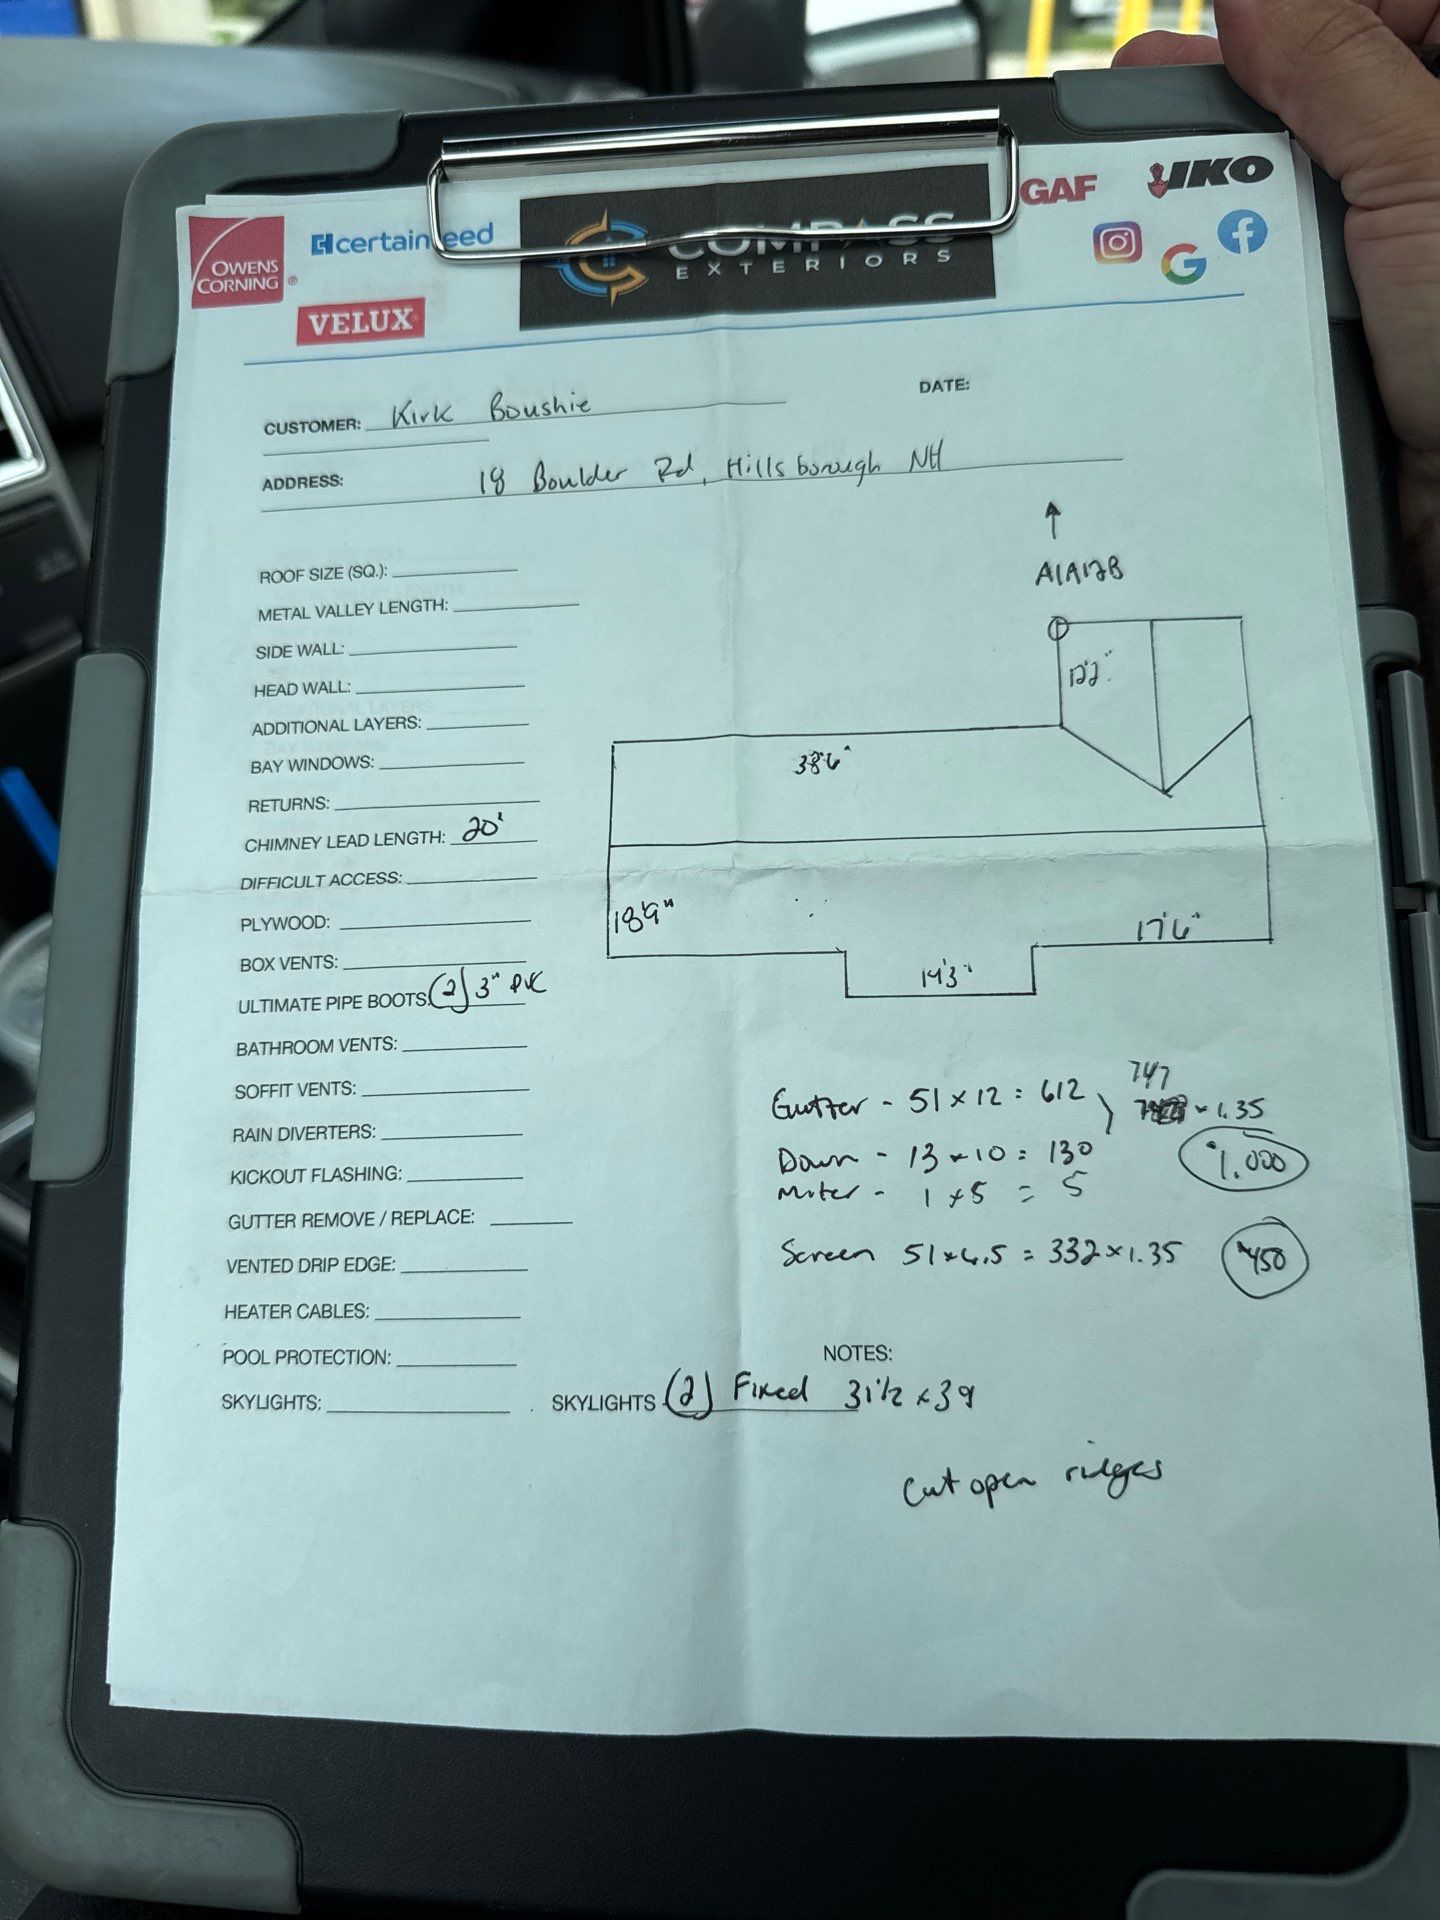 OWENS CORNING ®
certainteed
VELUX
COMPASS
EXTERIORS
GAF
IKO
CUSTOMER: Kirk Boushie
DATE:
ADDRESS: 18 Boulder Rd, Hillsborough NH
ROOF SIZE (SQ.):
METAL VALLEY LENGTH:
SIDE WALL:
HEAD WALL:
ADDITIONAL LAYERS:
BAY WINDOWS:
RETURNS:
CHIMNEY LEAD LENGTH: 20'
DIFFICULT ACCESS:
PLYWOOD:
BOX VENTS:
ULTIMATE PIPE BOOTS: (2) 3" PVC
BATHROOM VENTS:
SOFFIT VENTS:
RAIN DIVERTERS:
KICKOUT FLASHING:
GUTTER REMOVE / REPLACE:
VENTED DRIP EDGE:
HEATER CABLES:
POOL PROTECTION:
SKYLIGHTS:
A1A12B
12'2"
38'6"
18'9"
17'6"
14'3"
Gutter - 51 x 12 = 612
747
x 1.35
Down - 13 x 10 = 130
$1,000
Miter - 1 x 5 = 5
Screen 51 x 6.5 = 332 x 1.35
$450
NOTES:
SKYLIGHTS (2) Fixed 31 1/2 x 39
Cut open ridges